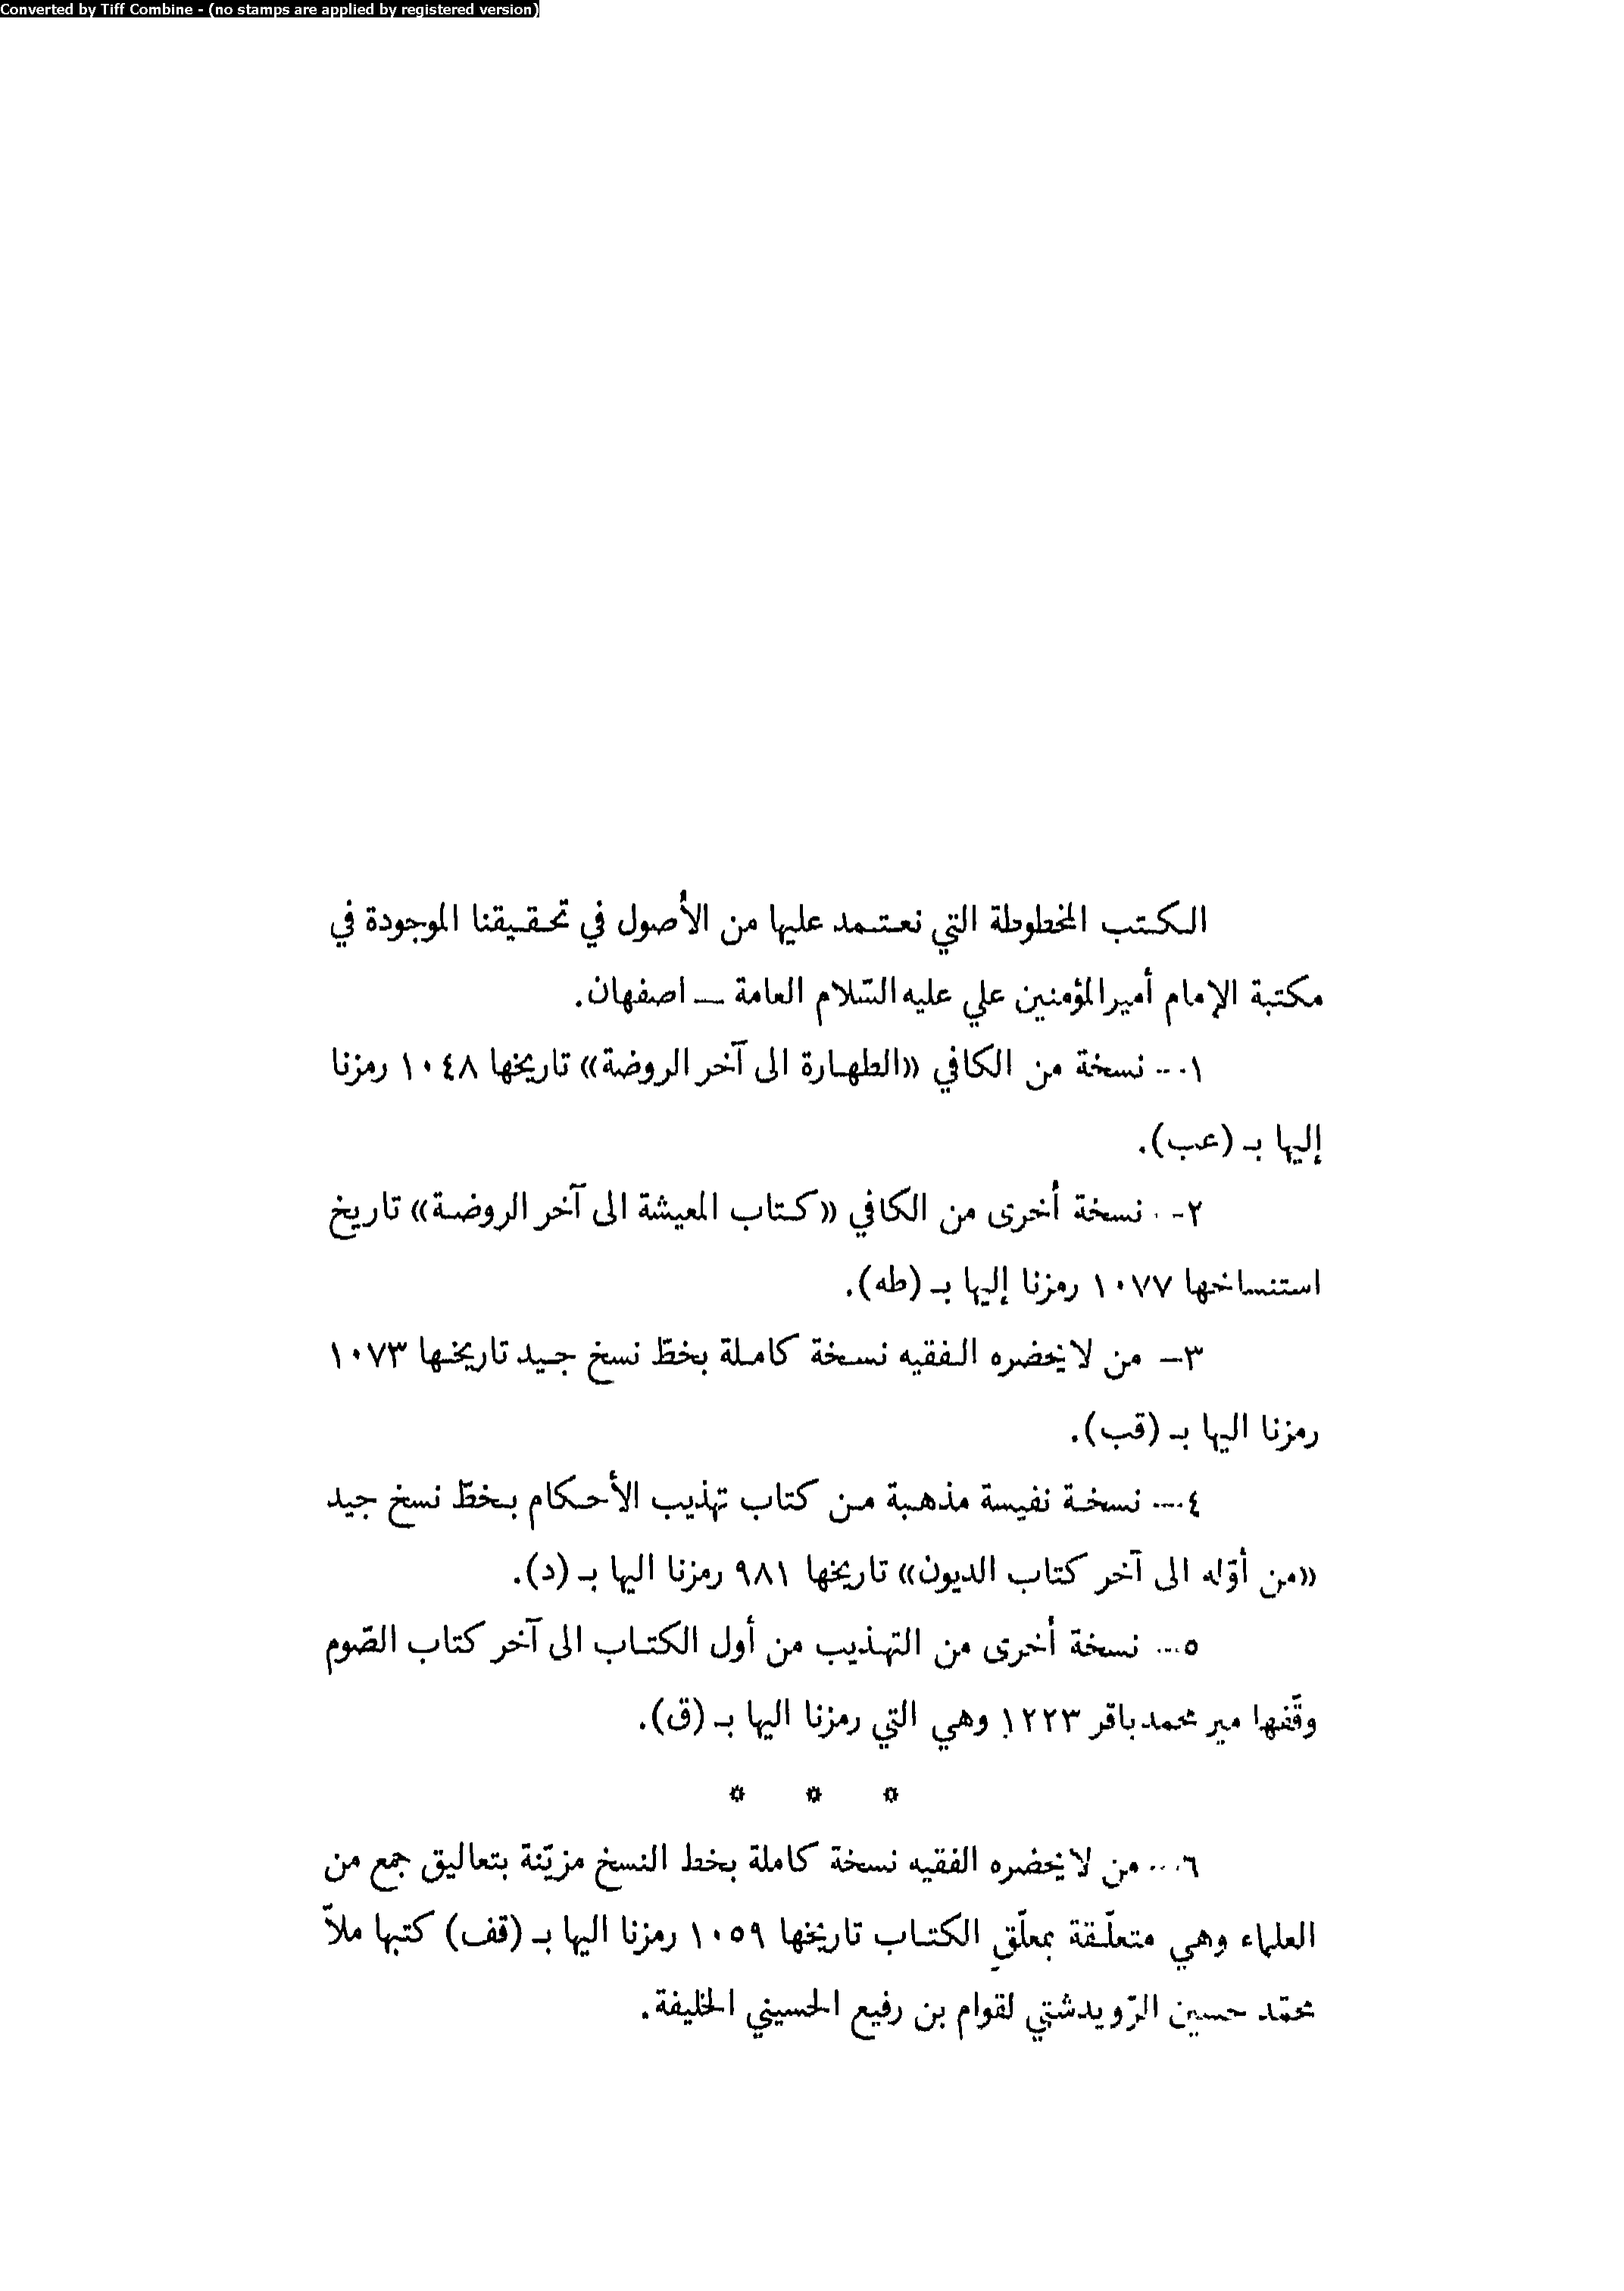 Converted by Tiff Combine - (no stamps are applied by registered version)
الكتب المخطوطة التي نعتمد عليها من الأصول في تحقيقنا الموجودة في
مكتبة الإمام أميرالمؤمنين علي عليه السّلام العامة ــ اصفهان.
١ــ نسخة من الكافي «الطهارة الى آخر الروضة» تاريخها ١٠٤٨ رمزنا
إليها بـ (عب).
٢ــ نسخة أخرى من الكافي «كتاب المعيشة الى آخر الروضة» تاريخ
استنساخها ١٠٧٧ رمزنا إليها بـ (طه).
٣ــ من لا يحضره الفقيه نسخة كاملة بخطّ نسخ جيد تاريخها ١٠٧٣
رمزنا اليها بـ (قب).
٤ــ نسخة نفيسة مذهبة من كتاب تهذيب الأحكام بخطّ نسخ جيد
«من أوّله الى آخر كتاب الديون» تاريخها ٩٨١ رمزنا اليها بـ (د).
٥ــ نسخة أخرى من التهذيب من أول الكتاب الى آخر كتاب الصّوم
وقّفها مير محمدباقر ١٢٢٣ وهي التي رمزنا اليها بـ (ق).
* * *
٦ــ من لا يحضره الفقيه نسخة كاملة بخط النسخ مزيّنة بتعاليق جمع من
العلماء وهي متعلّقة بمعلّق الكتاب تاريخها ١٠٥٩ رمزنا اليها بـ (قف) كتبها ملاّ
محمّد حسين الرّويدشتي لقوام بن رفيع الحسيني الخليفة.